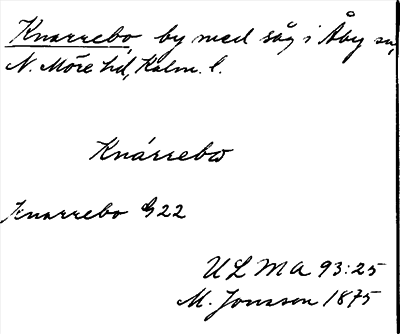 Knarrebo by med såg i Åby sn,
N. Möre hd, Kalm. l.
Knárrebω
Knarrebo G22
ULMA 93:25
M. Jonsson 1875